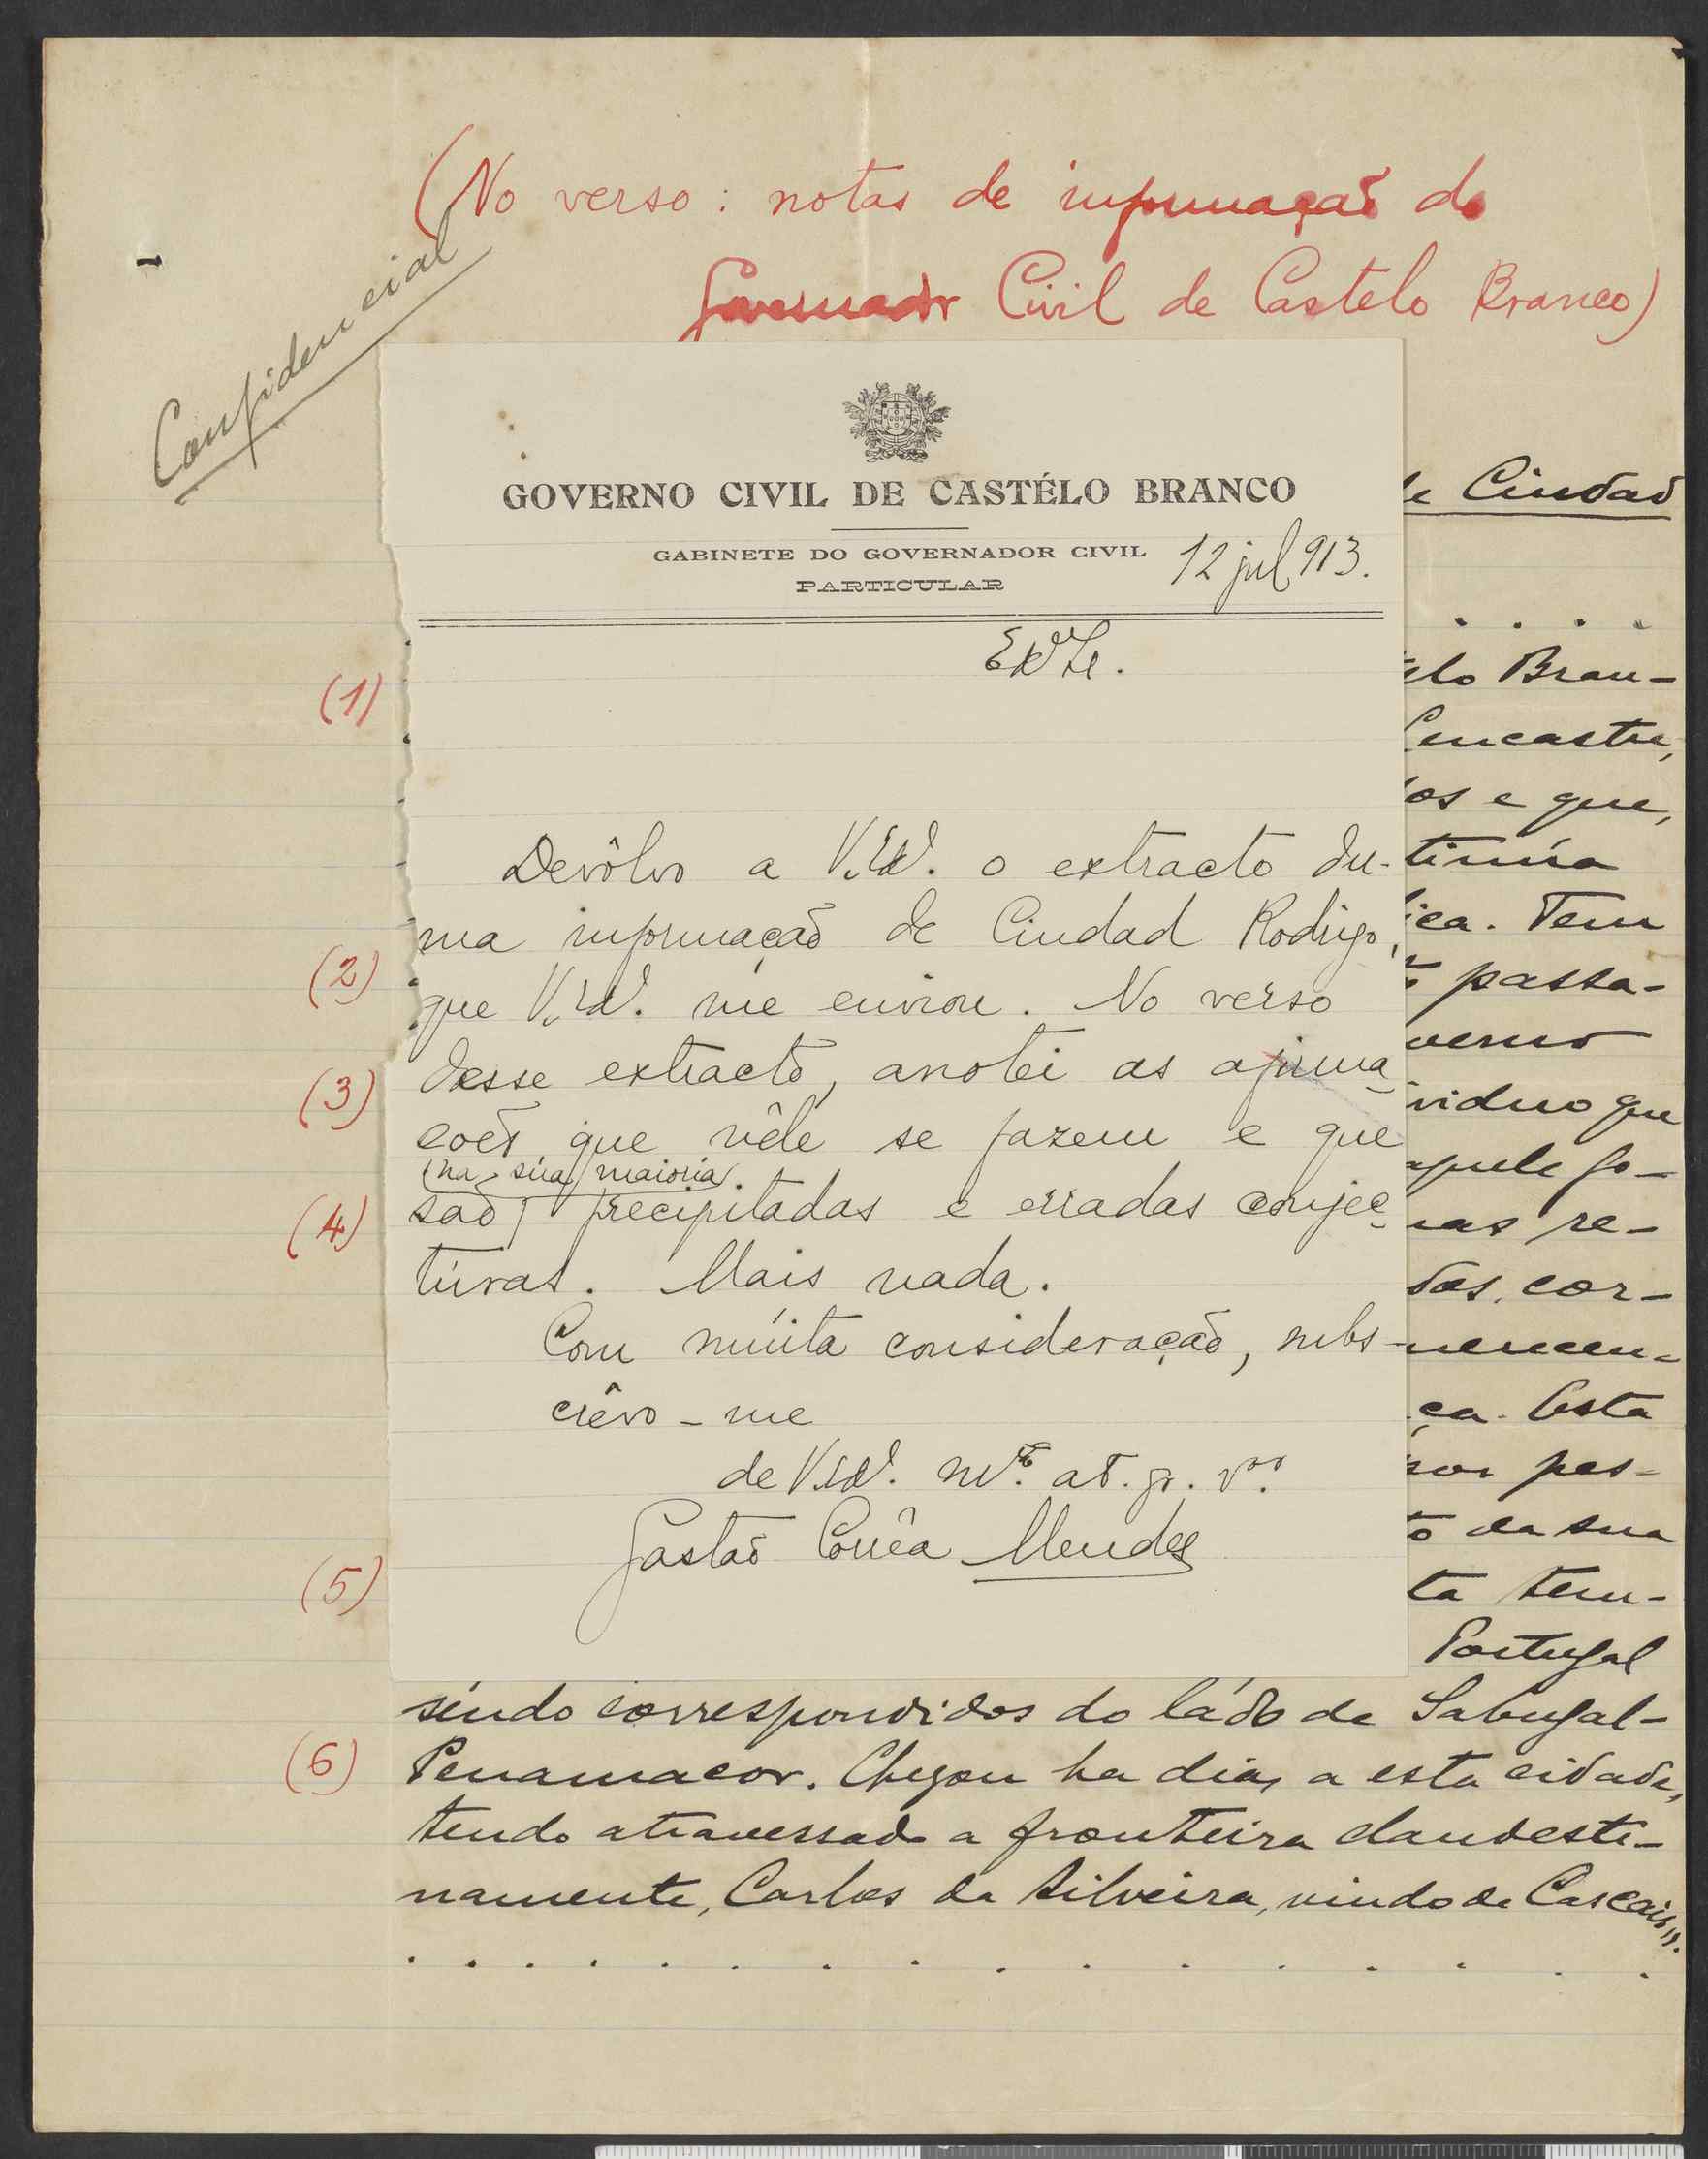 (No verso: notas de informação do
Governador Civil de Castelo Branco)
Confidencial
GOVERNO CIVIL DE CASTÉLO BRANCO
GABINETE DO GOVERNADOR CIVIL
PARTICULAR
12 jul 913.
(1)
Devôlvo a V. o extracto du-
ma informação de Ciudad Rodrigo,
(2)
que V. me enviou. No verso
desse extracto, anotei as afirma-
(3)
ções que nêle se fazem e que
(na súa maioria)
são precipitadas e erradas conjec-
(4)
túras. Mais nada.
Com múita consideração, subs-
crêvo-me
de V. at. v.
Gastão Corrêa Mendes
(5)
de Ciudad
. . . .
elo Bran-
Lencastre,
os e que,
tinúa
ica. Tem
passa-
verno
ividuo que
aquele go-
nas re-
das, cor-
ça. Esta
por pes-
to da sua
ta tem-
Portugal
sendo correspondidos do ládo de Sabugal-
(6)
Penamacor. Chegou ha dias a esta cidade,
tendo atravessado a fronteira clandesti-
namente, Carlos da Silveira, vindo de Cascais".
. . . . . . . . . . . . . . . . .